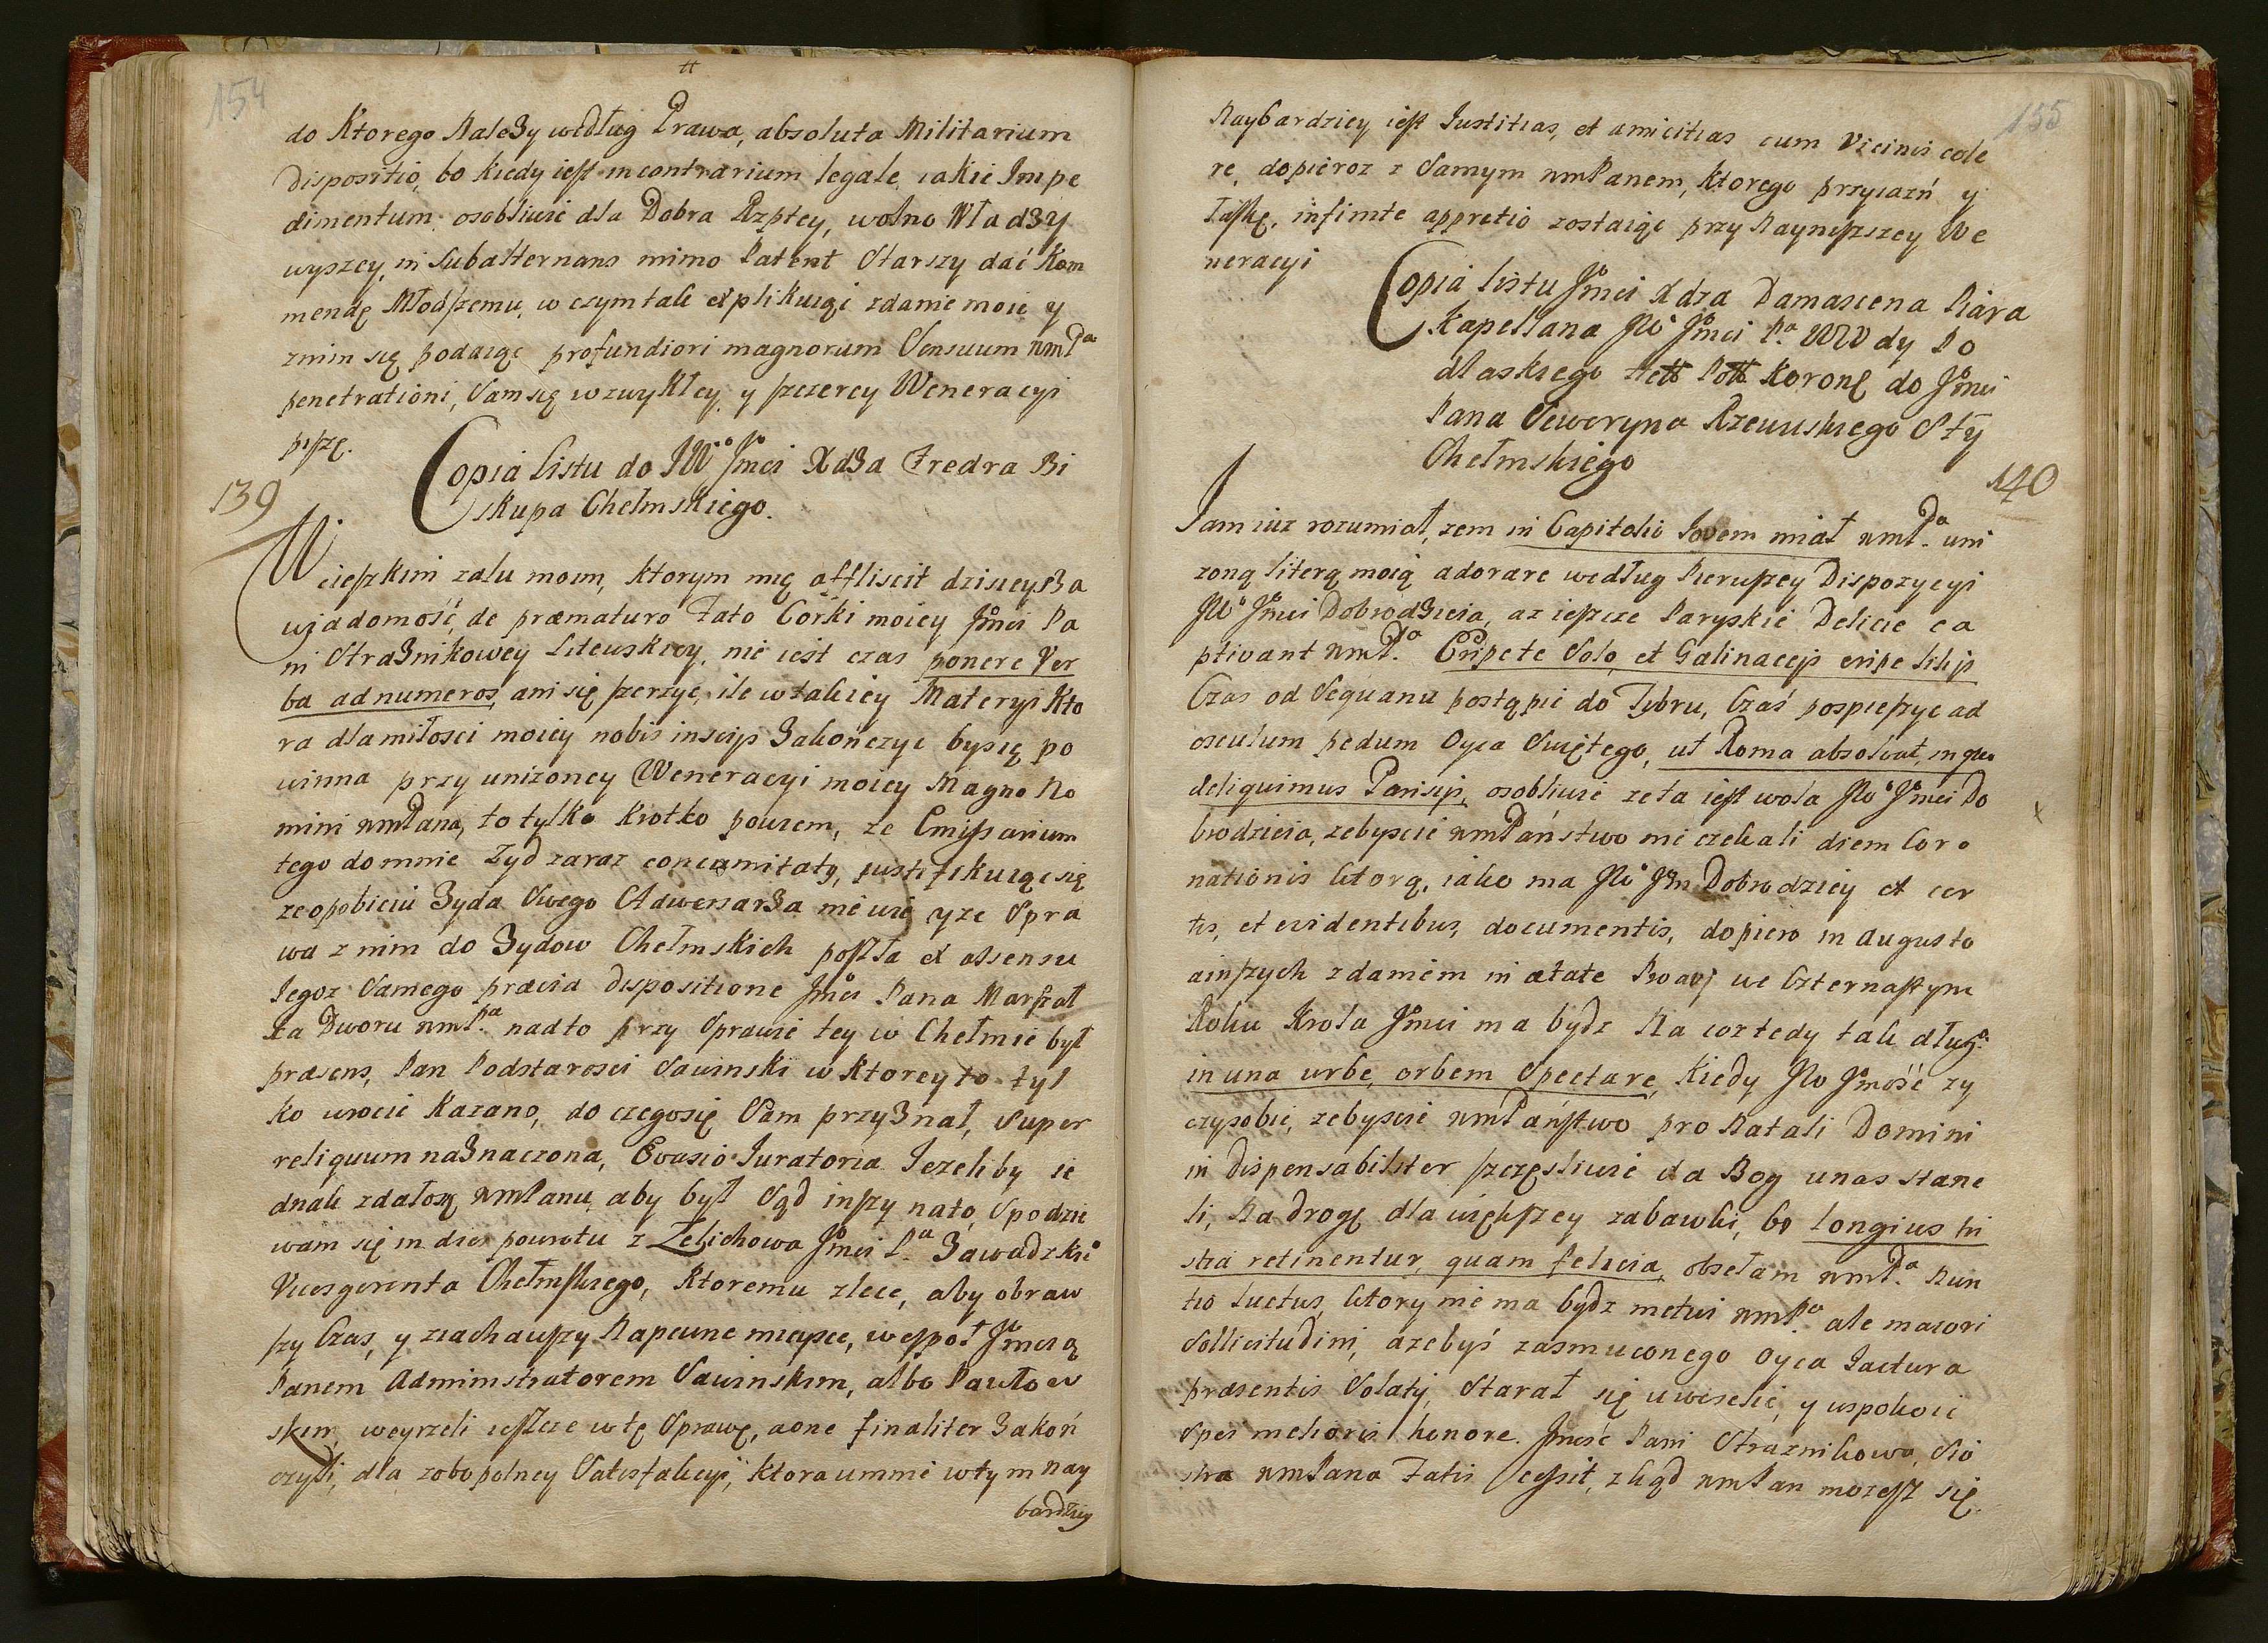 154
#
do Ktorego Nalezy według Prawa, absoluta Militarium
Dispositio, bo kiedy iest in contrarium legale iakie Impe
dimentum osobliwie dla Dobra Rzptey, wolno Władzy
wyszey in Subalternans mimo Patent Starszy dać Kom
mendę Młodszemu, w czym tak explikuiąc zdanie moie y
znim się podaięc profundiori magnorum Sensuum WmPa
penetrationi, Sam się wzwykłey y szczerey Weneracyi
piszę.
139
Copia listu do JWo Jmci Xdza Fredra Bi
skupa Chełmskiego.
W cieszkim zalu moim, ktorym mię afflixit dzisieysza
wiadomość, de præmaturo Fato Corki moiey Jmci Pa
ni Straznikowey Litewskiey, nie iest czas ponere Ver
ba ad numeros, ani się szerzyc, ile w takiey Materyi Kto
ra dla miłosci moiey nobis insciis zakończyc by się po
winna przy unizoney Weneracyi moiey Magno No
mini WmPana, to tylko krotko powiem, ze Emissarium
tego do mnie Zyd zaraz concomitatq, justifikuiąc się
ze o pobiciu Zyda Swego Adwersarza nie wie, y ze Spra
wa z nim do Zydow Chełmskich poszła ex assensu
Iegoz Samego prævia dispositione Jmci Pana Marszał
ka Dworu WmPa nadto przy Sprawie tey w Chełmie był
præsens, Pan Podstarosci Sawinski w Ktorey to tyl
ko wrocic Kazano, do czego się Sam przyznał, Super
reliquum naznaczona, Evasio Juratoria Iezeliby ie
dnak zdałosię WmPanu, aby był Sąd inszy na to, Spodzie
wam się in dies powrotu z Zelichowa Jmci Pa Zawadzkie
Vicesgerenta Chełmskiego, Ktoremu zlece, aby obraw
szy Czas, y ziachawszy Na pewne mieysce, wespoł Jmcią
Panem Administratorem Sawinskim, albo Pawłow
skim weyrzeli ieszcze w tę Sprawę, a one finaliter zakoń
czyli, dla zobopolney Satisfakcyi, ktora u mnie w tym nay
bardziey
155
Naybardziey iest Iustitias, et amicitias cum Vicinis cole
re, dopieroz z Samym WmPanem, ktorego przyiazń y
łaskę, infinite appretio zostaiąc przy Nayniższey We
neracyi
Copia listu Jmci Xdza Damascena Piara
Kapellana JWo Jmci Pa WWdy Po
dlaskiego Hett Poll Koronę do Jmci
Pana Seweryna Rzewuskiego Stty
Chełmskiego
140
Iam iuz rozumiał, zem in Capitolio Iovem miał WmPa uni
zoną literą moią adorare według Pierwszey Dispozycyi
JWo Jmci Dobrodzieia, az ieszcze Paryskie Delicie ca
ptivant WmPa. Eripe te Solo, et Galinaceis eripe liliis
Czas od Sequanu postąpic do Tybru, Czas pospieszyc ad
osculum pedum Oyca Swiętego, ut Roma absolvat, in quo
deliquimus Parisiis, osobliwie ze ta iest wola JWo Jmci Do
brodzieia, zebyscie WmPaństwo nie czekali diem Coro
nationis ktorą, iako ma JWo Jm Dobrodziey ex cer
tis, et evidentibus, documentis, dopiero in Augusto
ainszych zdaniem in ætate Proavi we Czternastym
Roku Krola Jmci ma bydz Na coz tedy tak długo
in una urbe, orbem Spectare, Kiedy JWo Jmość zy
czy sobie, zebyscie WmPaństwo pro Natali Domini
indispensabiliter szczęsliwie da Bog u nas stane
li, Na drogę dla większey zabawki, bo longius tri
stia retinentur, quam felicia, obsełam WmPa Nun
tio luctus, ktory nie ma bydz metui WmPa ale maiori
Sollicitudini, azebyś zasmuconego Oyca Iactura
præsentis Solatij, Starał się uweselic, y uspokoic
Spei melioris honore. Jmść Pani Straznikowa, Sio
stra WmPana Fatis cessit, zkąd WmPan mozesz się